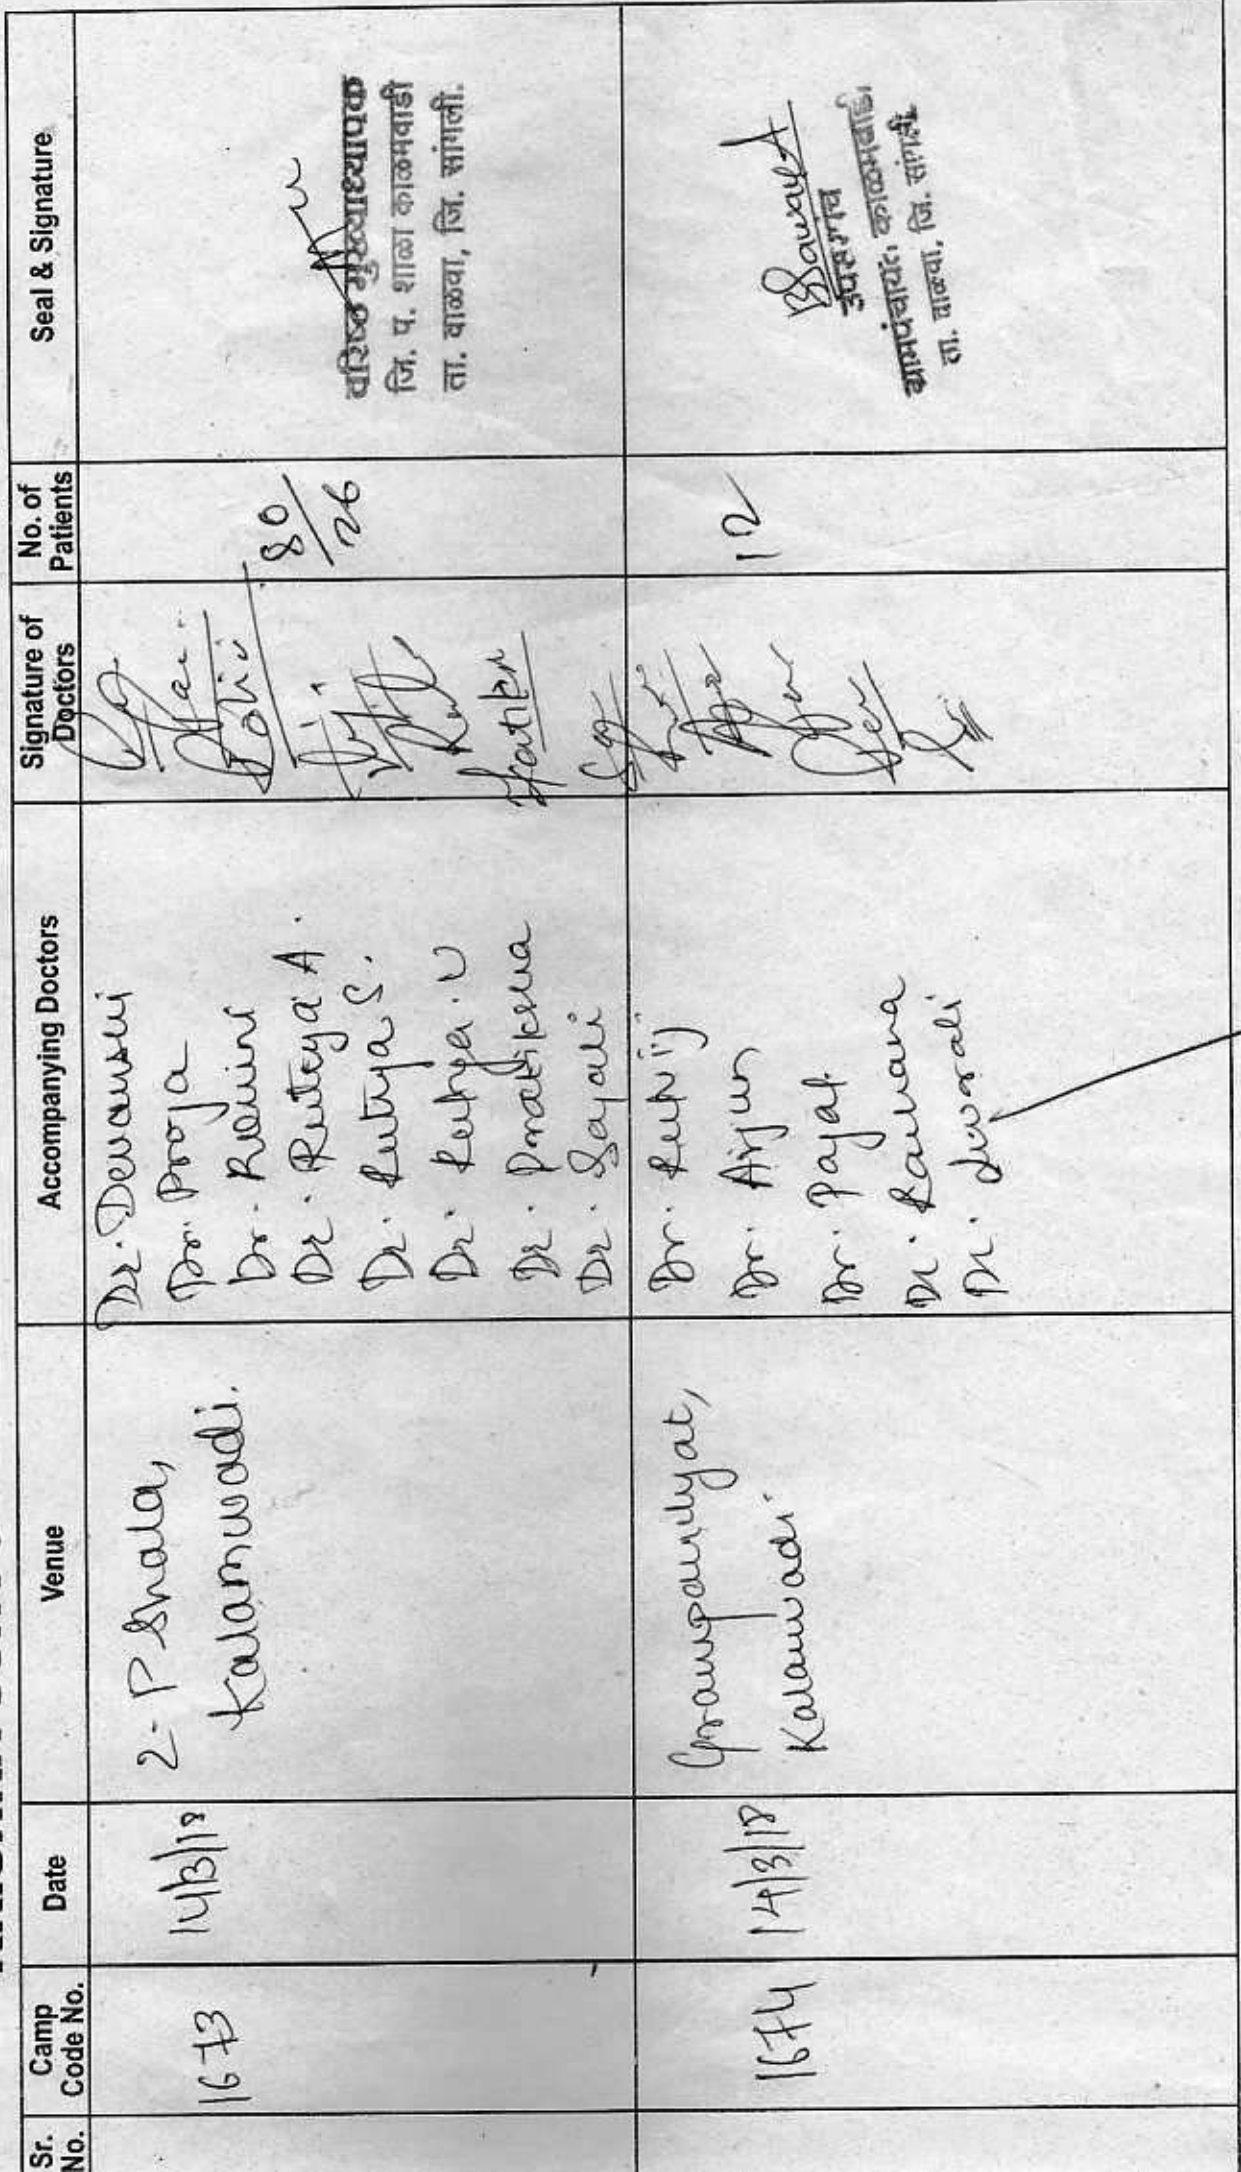 Sr. No.
Camp Code No.
Date
Venue
Accompanying Doctors
Signature of Doctors
No. of Patients
Seal & Signature
1673
14/3/18
Z-P Shala,
Kalamwadi.
Dr. Devanshi
Dr. Pooja
Dr. Rohini
Dr. Rutuja A.
Dr. Rutuja S.
Dr. Rutuja. U
Dr. Pratiksha
Dr. Sayali
80/26
वरिष्ठ मुख्याध्यापक
जि. प. शाळा काळमवाडी
ता. वाळवा, जि. सांगली.
1674
14/3/18
Grampanchyat,
Kalamwadi.
Dr. Rutvij
Dr. Arjun
Dr. Payal
Dr.
Dr.
12
उपसरपंच
ग्रामपंचायत, काळमवाडी,
ता. वाळवा, जि. सांगली.